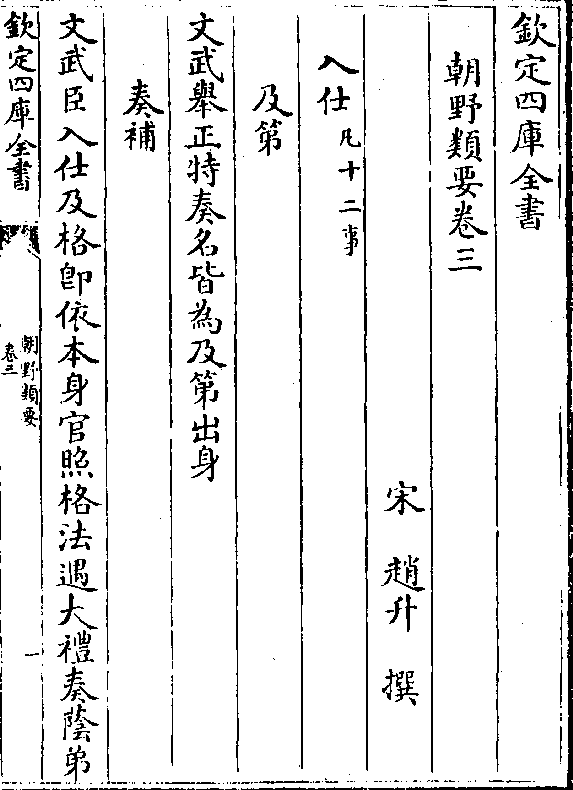 欽定四庫全書
朝野類要卷三
宋 趙升 撰
入仕凡十二事
及第
文武舉正特奏名皆為及第出身
奏補
文武臣入仕及格即依本身官照格法遇大禮奏蔭弟
欽定四庫全書
朝野類要
卷三
一